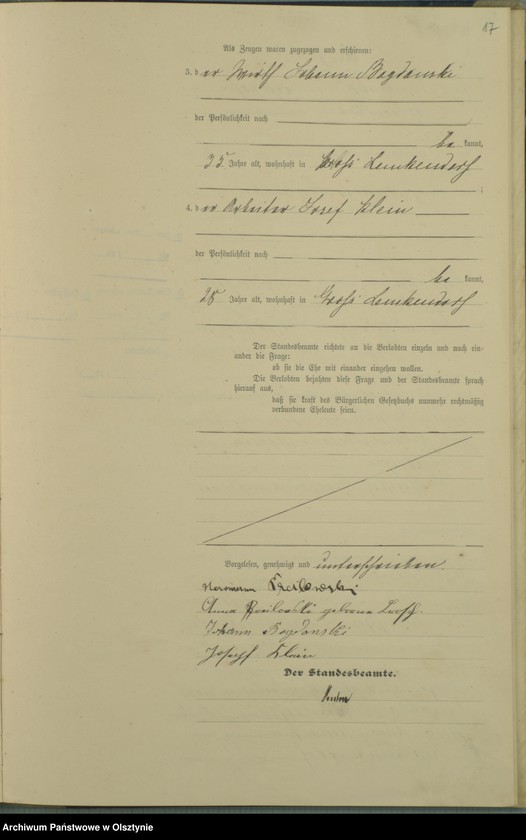 17
Als Zeugen waren zugezogen und erschienen:
3. der Wirth Johann Bogdanski
der Persönlichkeit nach
be kannt,
35 Jahre alt, wohnhaft in Groß Lemkendorf
4. der Arbeiter Josef Klein
der Persönlichkeit nach
be kannt,
25 Jahre alt, wohnhaft in Groß Lemkendorf
Der Standesbeamte richtete an die Verlobten einzeln und nach ein-
ander die Frage:
ob sie die Ehe mit einander eingehen wollen.
Die Verlobten bejahten diese Frage und der Standesbeamte sprach
hierauf aus,
daß sie kraft des Bürgerlichen Gesetzbuchs nunmehr rechtmäßig
verbundene Eheleute seien.
Vorgelesen, genehmigt und unterschrieben.
Anna geborene
Johann Bogdanski
Joseph Klein
Der Standesbeamte.
Archiwum Państwowe w Olsztynie